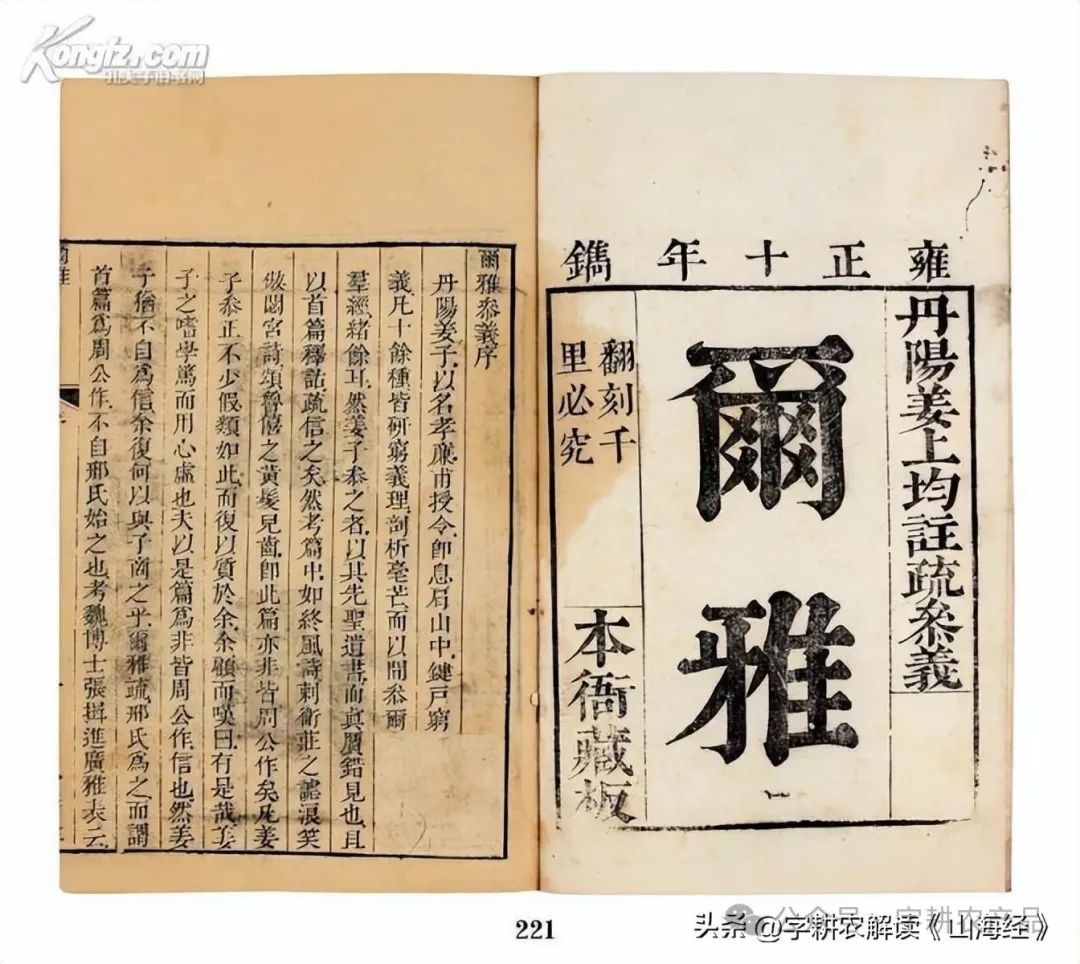 Kongfz.com
孔夫子旧书网
雍正十年鐫
丹陽姜上均註疏叅義
爾雅
一
翻刻千
里必究
本衙藏板
爾雅叅義序
丹陽姜子以名孝廉甫授令卽息肩山中鍵戸窮
義凡十餘種皆研窮義理剖析毫芒而以閒叅爾
羣經緒餘耳然姜子叅之者以其先聖遺書而真贋錯見也且
以首篇釋詁疏信之矣然考篇中如終風詩刺衛莊之謔浪笑
傲閟宮詩頌魯僖之黃髮兒齒卽此篇亦非皆周公作矣凡姜
子叅正不少假類如此而復以質於余余顧而嘆曰有是哉姜
子之嗜學篤而用心虛也夫以是篇爲非皆周公作信也然姜
子猶不自爲信余復何以與子商之乎爾雅疏邢氏爲之而謂
首篇爲周公作不自邢氏始之也考魏博士張揖進廣雅表云
221
公众号·字耕农产品
头条@字耕农解读《山海经》